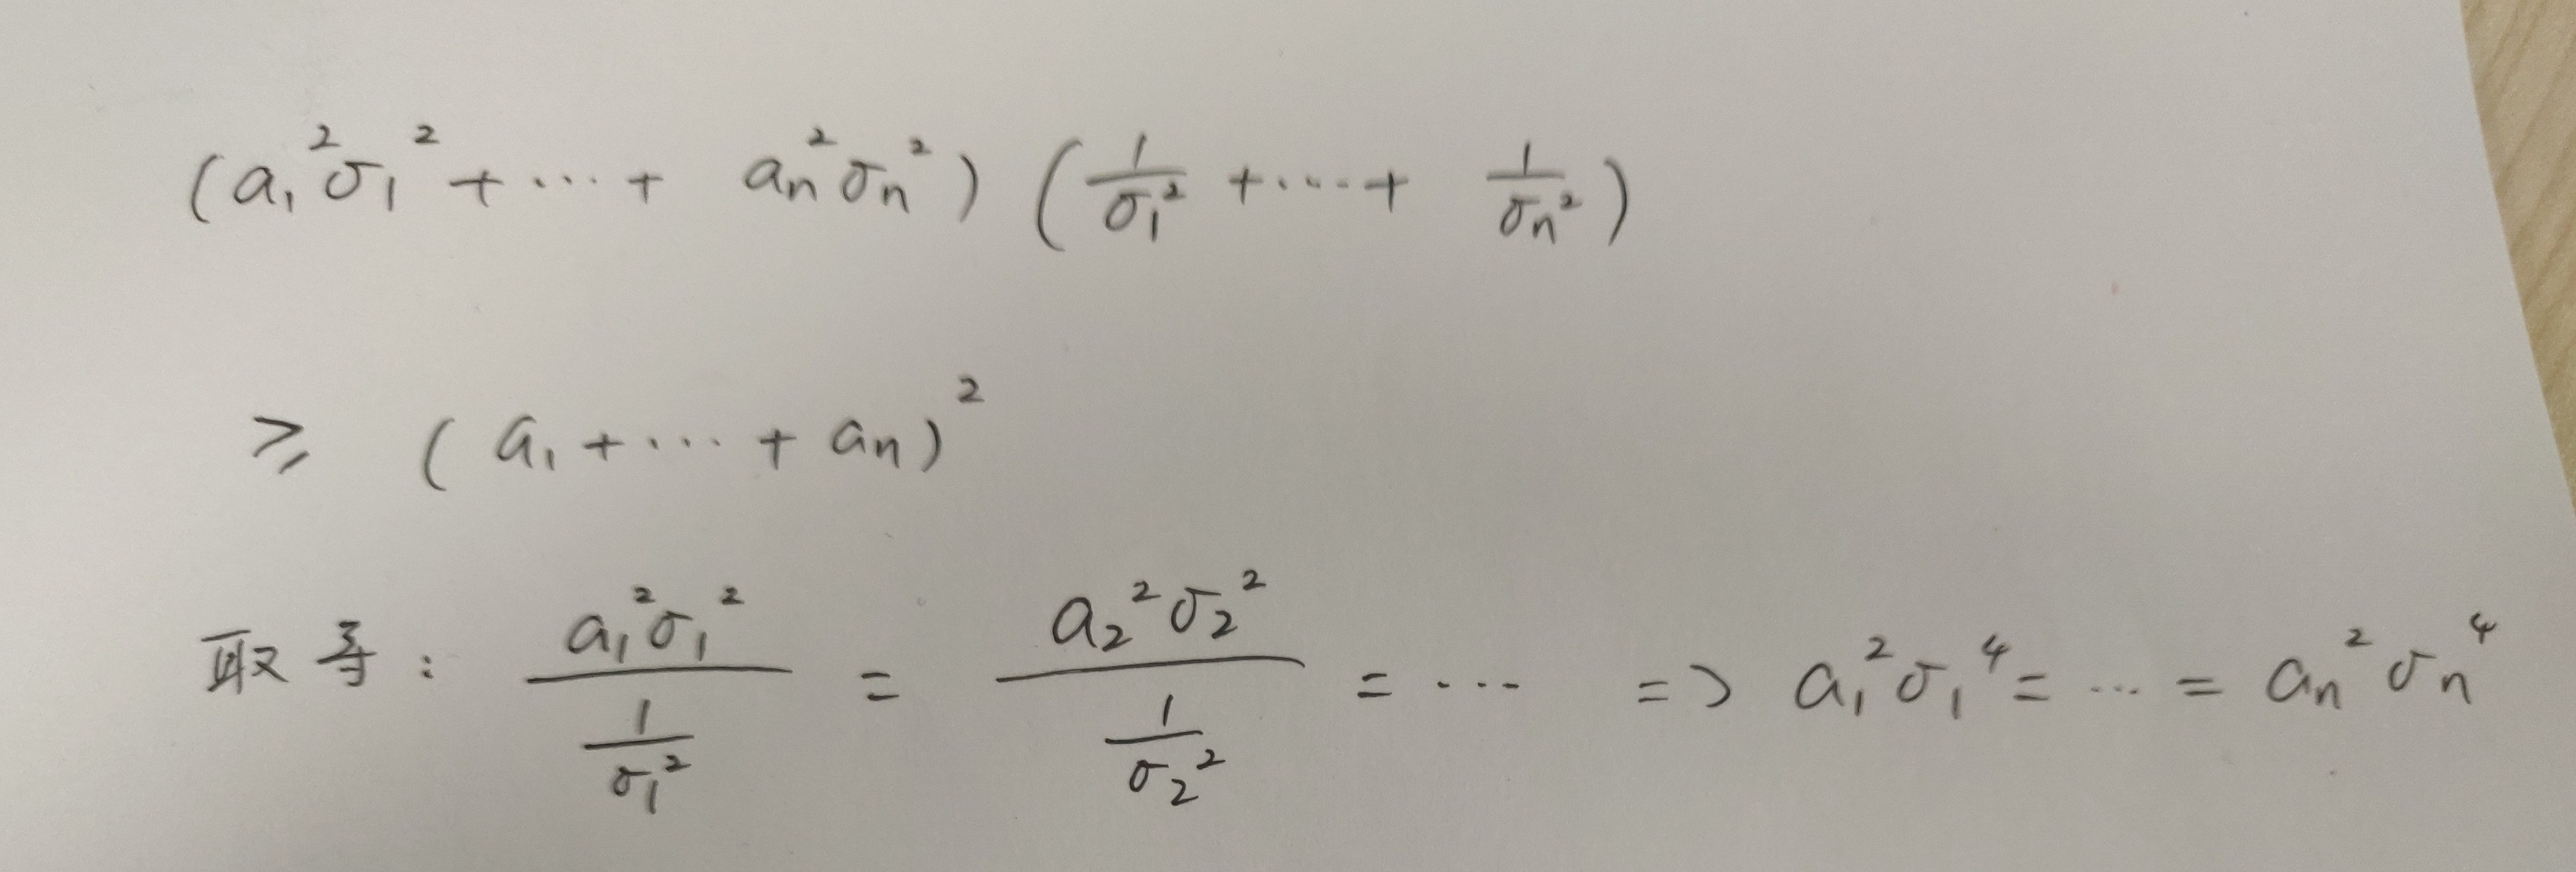 (a₁²σ₁² + ⋯ + aₙ²σₙ²) (1/σ₁² + ⋯ + 1/σₙ²)
≥ (a₁ + ⋯ + aₙ)²
取等: a₁²σ₁² / (1/σ₁²) = a₂²σ₂² / (1/σ₂²) = ⋯ => a₁²σ₁⁴ = ⋯ = aₙ²σₙ⁴